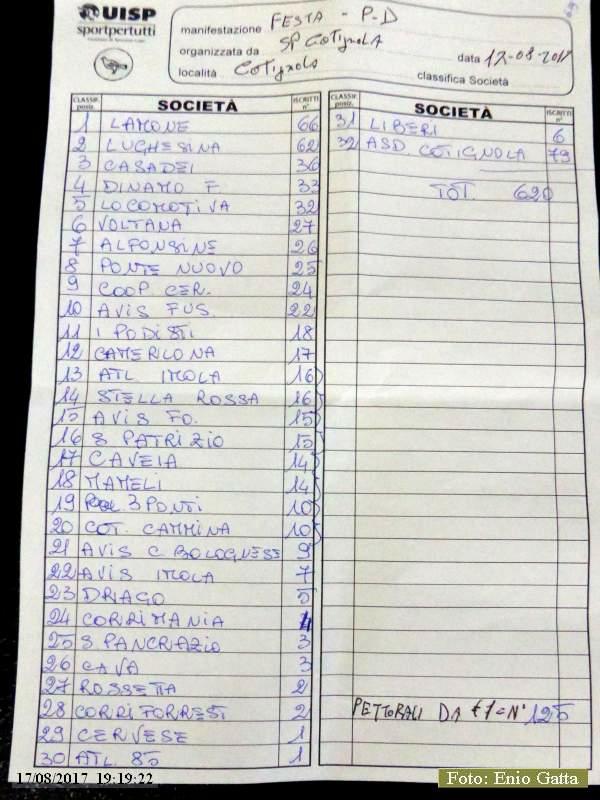 UISP
sportpertutti
manifestazione FESTA - P-D
organizzata da SP COTIGNOLA
località COTIGNOLA
data 17-08-2017
classifica Società
CLASSIF. posiz. SOCIETÀ ISCRITTI n°
1 LAMONE 66
2 LUGHESINA 62
3 CASADEI 36
4 DINAMO F 33
5 LOCOMOTIVA 32
6 VOLTANA 27
7 ALFONSINE 26
8 PONTE NUOVO 25
9 COOP CER. 24
10 AVIS FUS. 22
11 I PODISTI 18
12 CAMERLONA 17
13 ATL IMOLA 16
14 STELLA ROSSA 16
15 AVIS FO. 15
16 S PATRIZIO 15
17 CAVEIA 14
18 MAMELI 14
19 3 PONTI 10
20 COT. CAMMINA 10
21 AVIS C. BOLOGNESE 9
22 AVIS IMOLA 7
23 DRAGO 5
24 CORRIMANIA 4
25 S PANCRAZIO 3
26 CAVA 3
27 ROSSETTA 2
28 CORRIFORREST 2
29 CERVESE 1
30 ATL. 85 1
CLASSIF. posiz. SOCIETÀ ISCRITTI n°
31 LIBERI 6
32 ASD. COTIGNOLA 79
TOT. 620
PETTORALI DA €1= N° 125
17/08/2017 19:19:22
Foto: Enio Gatta